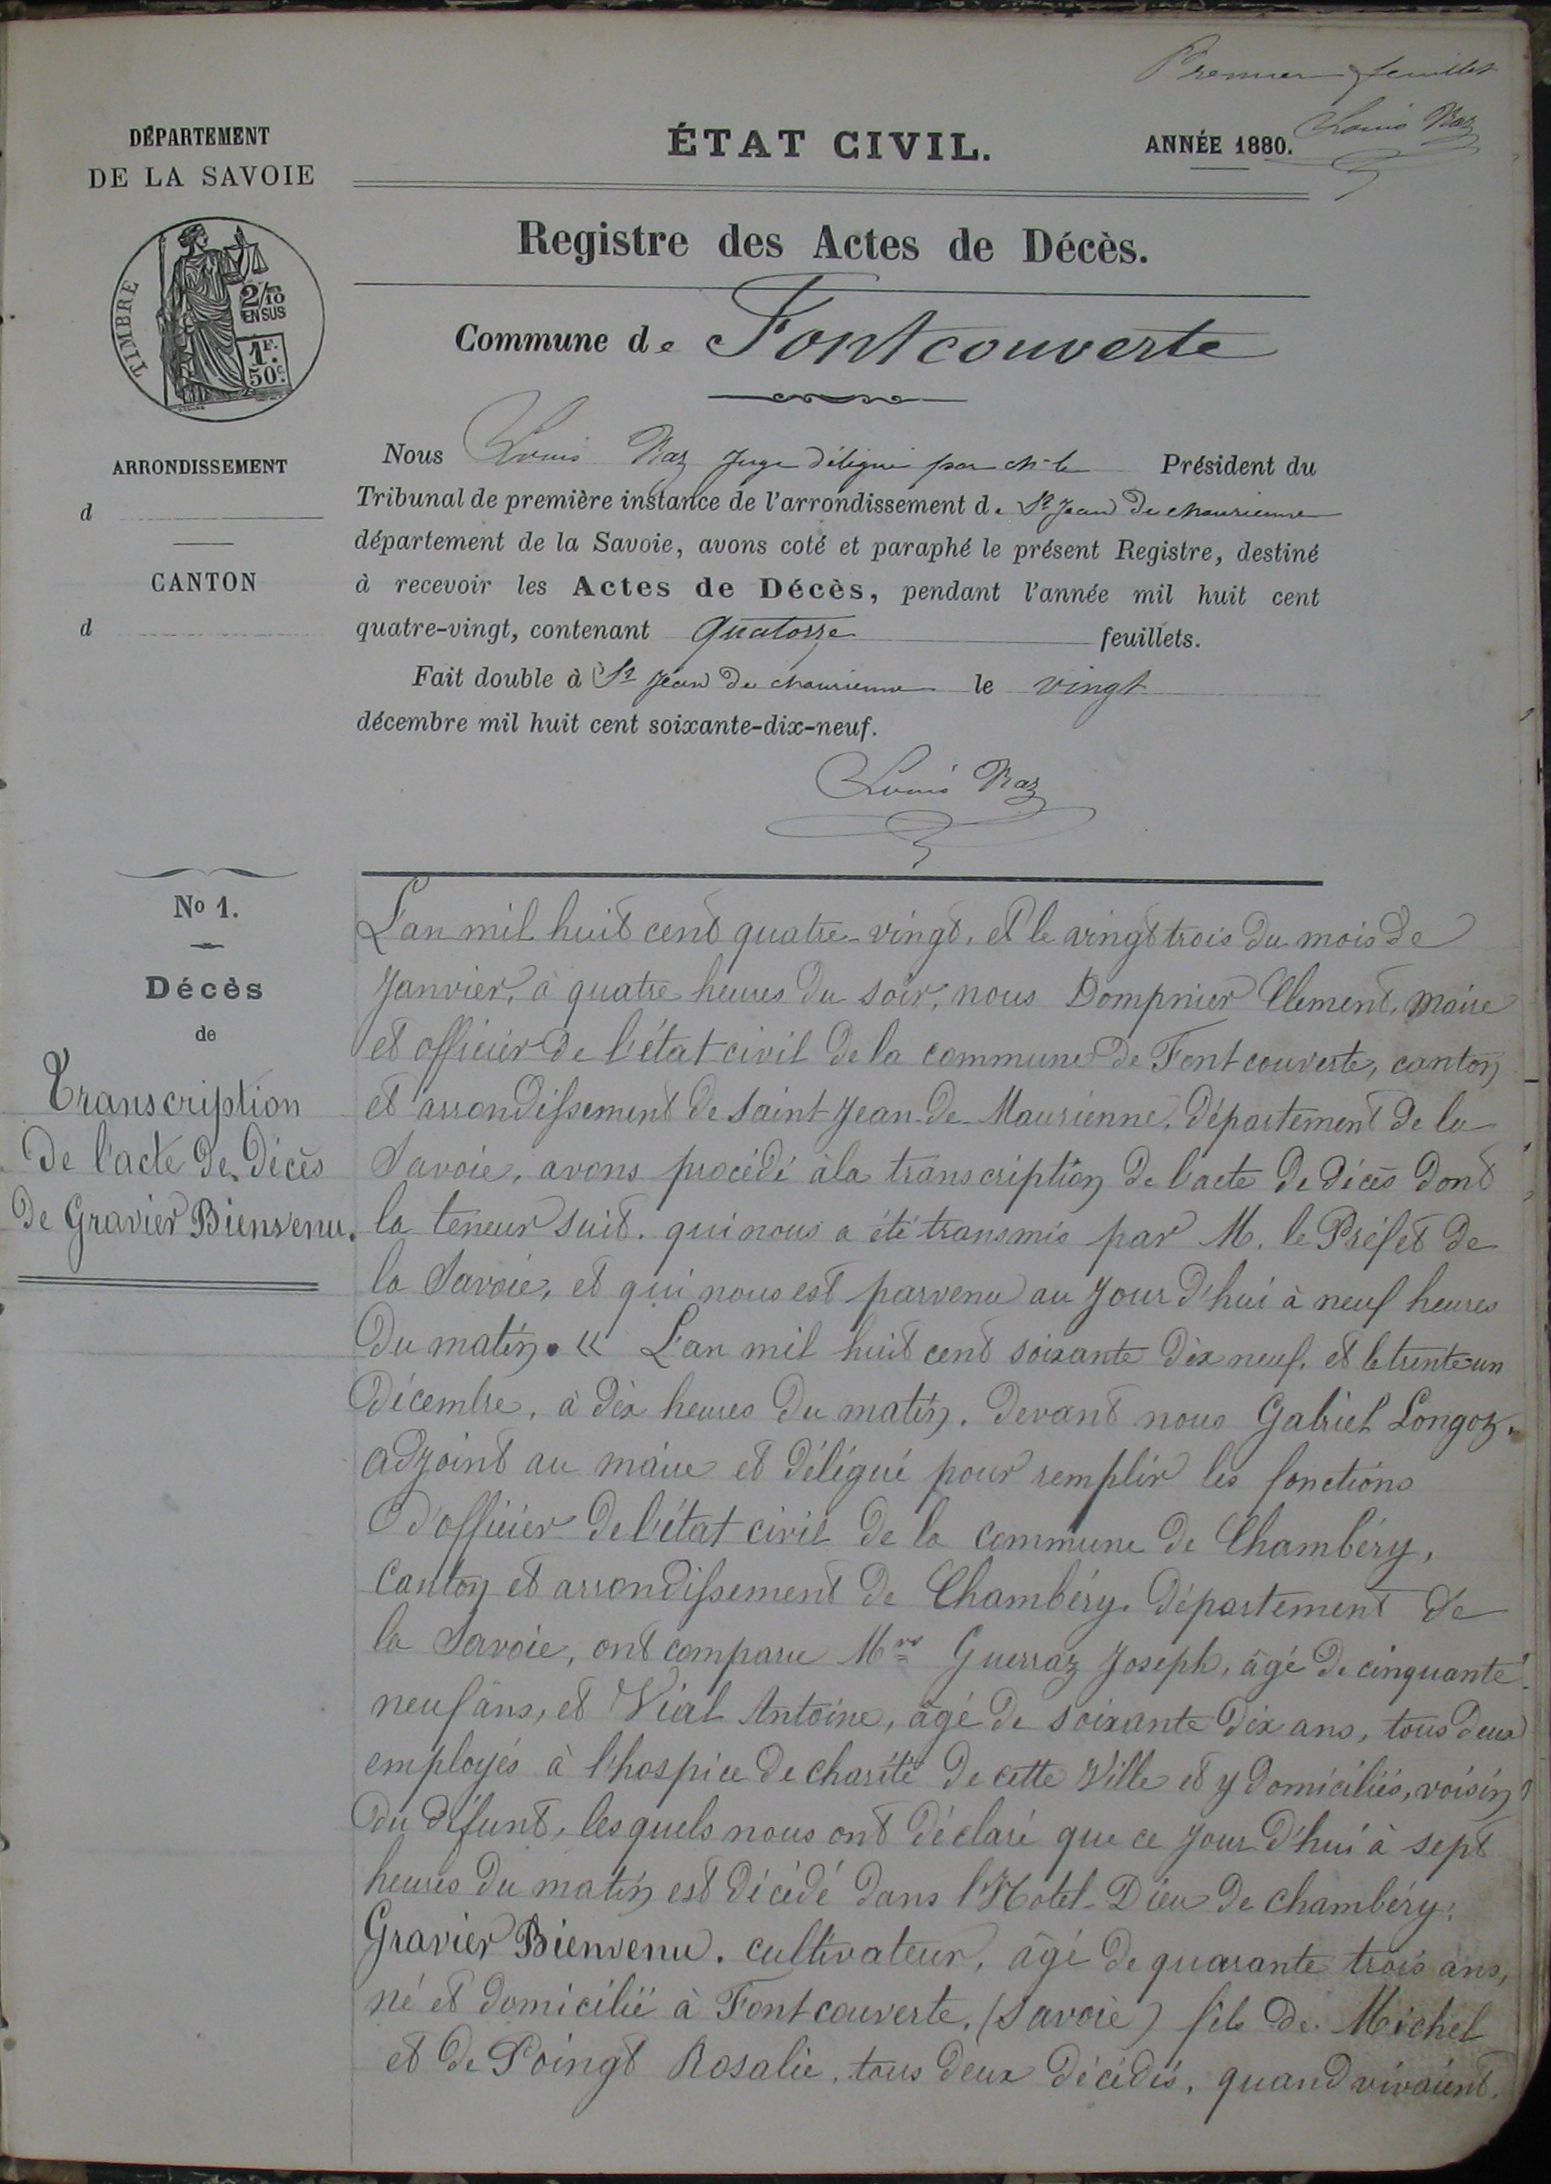 Premier feuillet
Louis Naz
DÉPARTEMENT
DE LA SAVOIE
ÉTAT CIVIL.
ANNÉE 1880.
Registre des Actes de Décès.
TIMBRE
2/10
EN SUS
1F.
50c.
Commune de Fontcouverte
ARRONDISSEMENT
d
CANTON
d
Nous Louis Naz Juge délégué par Mr le Président du
Tribunal de première instance de l'arrondissement de St Jean de Maurienne
département de la Savoie, avons coté et paraphé le présent Registre, destiné
à recevoir les Actes de Décès, pendant l'année mil huit cent
quatre-vingt, contenant Quatorze feuillets.
Fait double à St Jean de Maurienne le vingt
décembre mil huit cent soixante-dix-neuf.
Louis Naz
No 1.
Décès
de
Transcription
de l'acte de décès
de Gravier Bienvenu.
L'an mil huit cent quatre-vingt, et le vingt trois du mois de
Janvier, à quatre heures du soir, nous Dompnier Clement, Maire
et officier de l'état civil de la commune de Fontcouverte, canton
et arrondissement de Saint-Jean-de-Maurienne, département de la
Savoie, avons procédé à la transcription de l'acte de décès dont
la teneur suit. qui nous a été transmis par M. le Préfet de
la Savoie, et qui nous est parvenu au Jour d'hui à neuf heures
du matin. « L'an mil huit cent soixante dix neuf, et le trente un
Décembre, à dix heures du matin, devant nous Gabriel Longoz,
adjoint au maire et délégué pour remplir les fonctions
d'officier de l'état civil de la commune de Chambéry,
Canton et arrondissement de Chambéry, département de
la Savoie, ont comparu Mrs Guerraz Joseph, âgé de cinquante
neuf ans, et Vial Antoine, âgé de soixante dix ans, tous deux
employés à l'hospice de charité de cette Ville et y domiciliés, voisins
du défunt, lesquels nous ont déclaré que ce jour d'hui à sept
heures du matin est décédé dans l'Hotel-Dieu de Chambéry:
Gravier Bienvenu. cultivateur, âgé de quarante trois ans,
né et domicilié à Fontcouverte, (Savoie) fils de Michel
et de Poingt Rosalie, tous deux décédés, quand vivaient